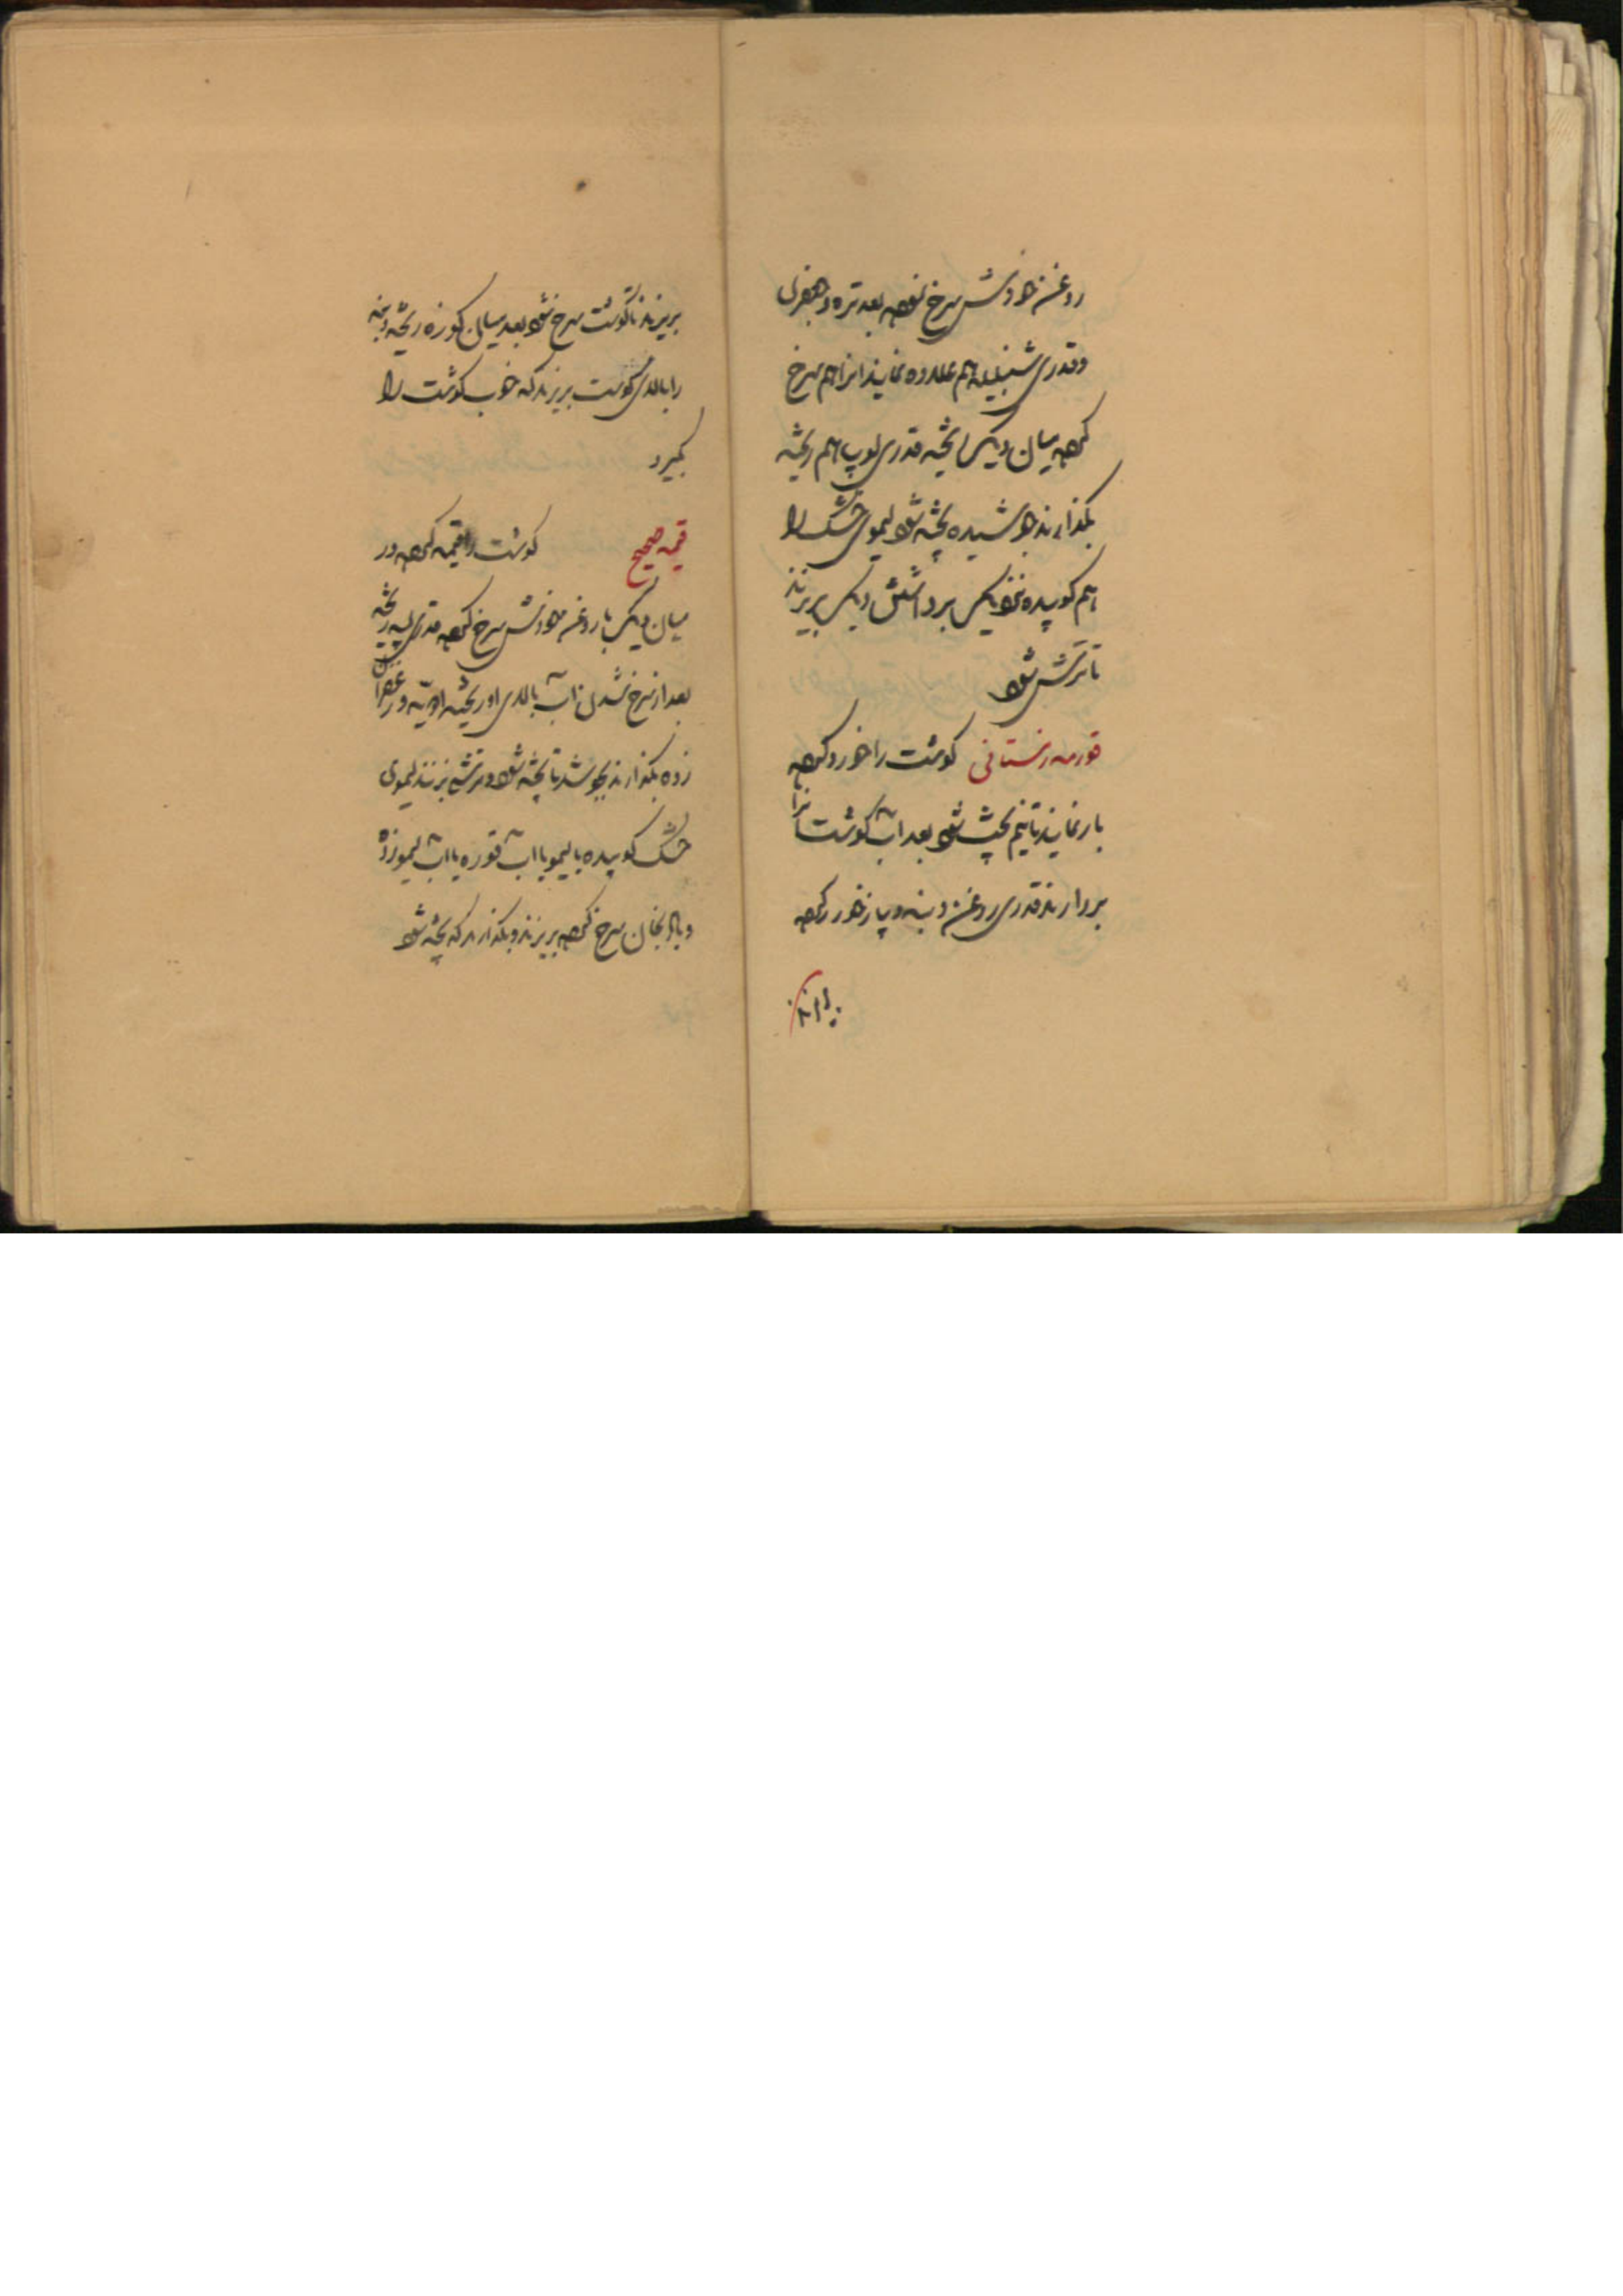 روغن خودش سرخ نموده بعد تره جعفری
وقدری شنبلیله هم علاوه نمایند انرا هم سرخ
کرده میان دیک ریخته قدری لوپیا هم ریخته
بگذارند جوشیده پخته شود لیموی خشک را
هم کوبیده نزدیک برداشتن دیک بریزند
تا ترش شود
قورمه زمستانی کوشت را خورد کرده
بار نمایند تا نیم پخت شود بعد آب کوشت انرا
بردارند قدری روغن دنبه و پیاز خورد کرده
بریزند تا کوشت سرخ شود بعد میان کوزه ریخته دنبه
را بالای کوشت بریزند که خوب کوشت را
بگیرد
قیمه صحیح کوشت را قیمه کرده در
میان دیک با روغن خودش سرخ کرده قدری لپه ریخته
بعد از سرخ شدن آب بالای او ریخته ادویه و زعفران
زده بگذارند بجوشد تا پخته شود و ترشی بزنند لیموی
خشک کوبیده یا لیمو یا آب قوره یا آب لیمو زده
و بادنجان سرخ کرده بریزند و بگذارند که پخته شود